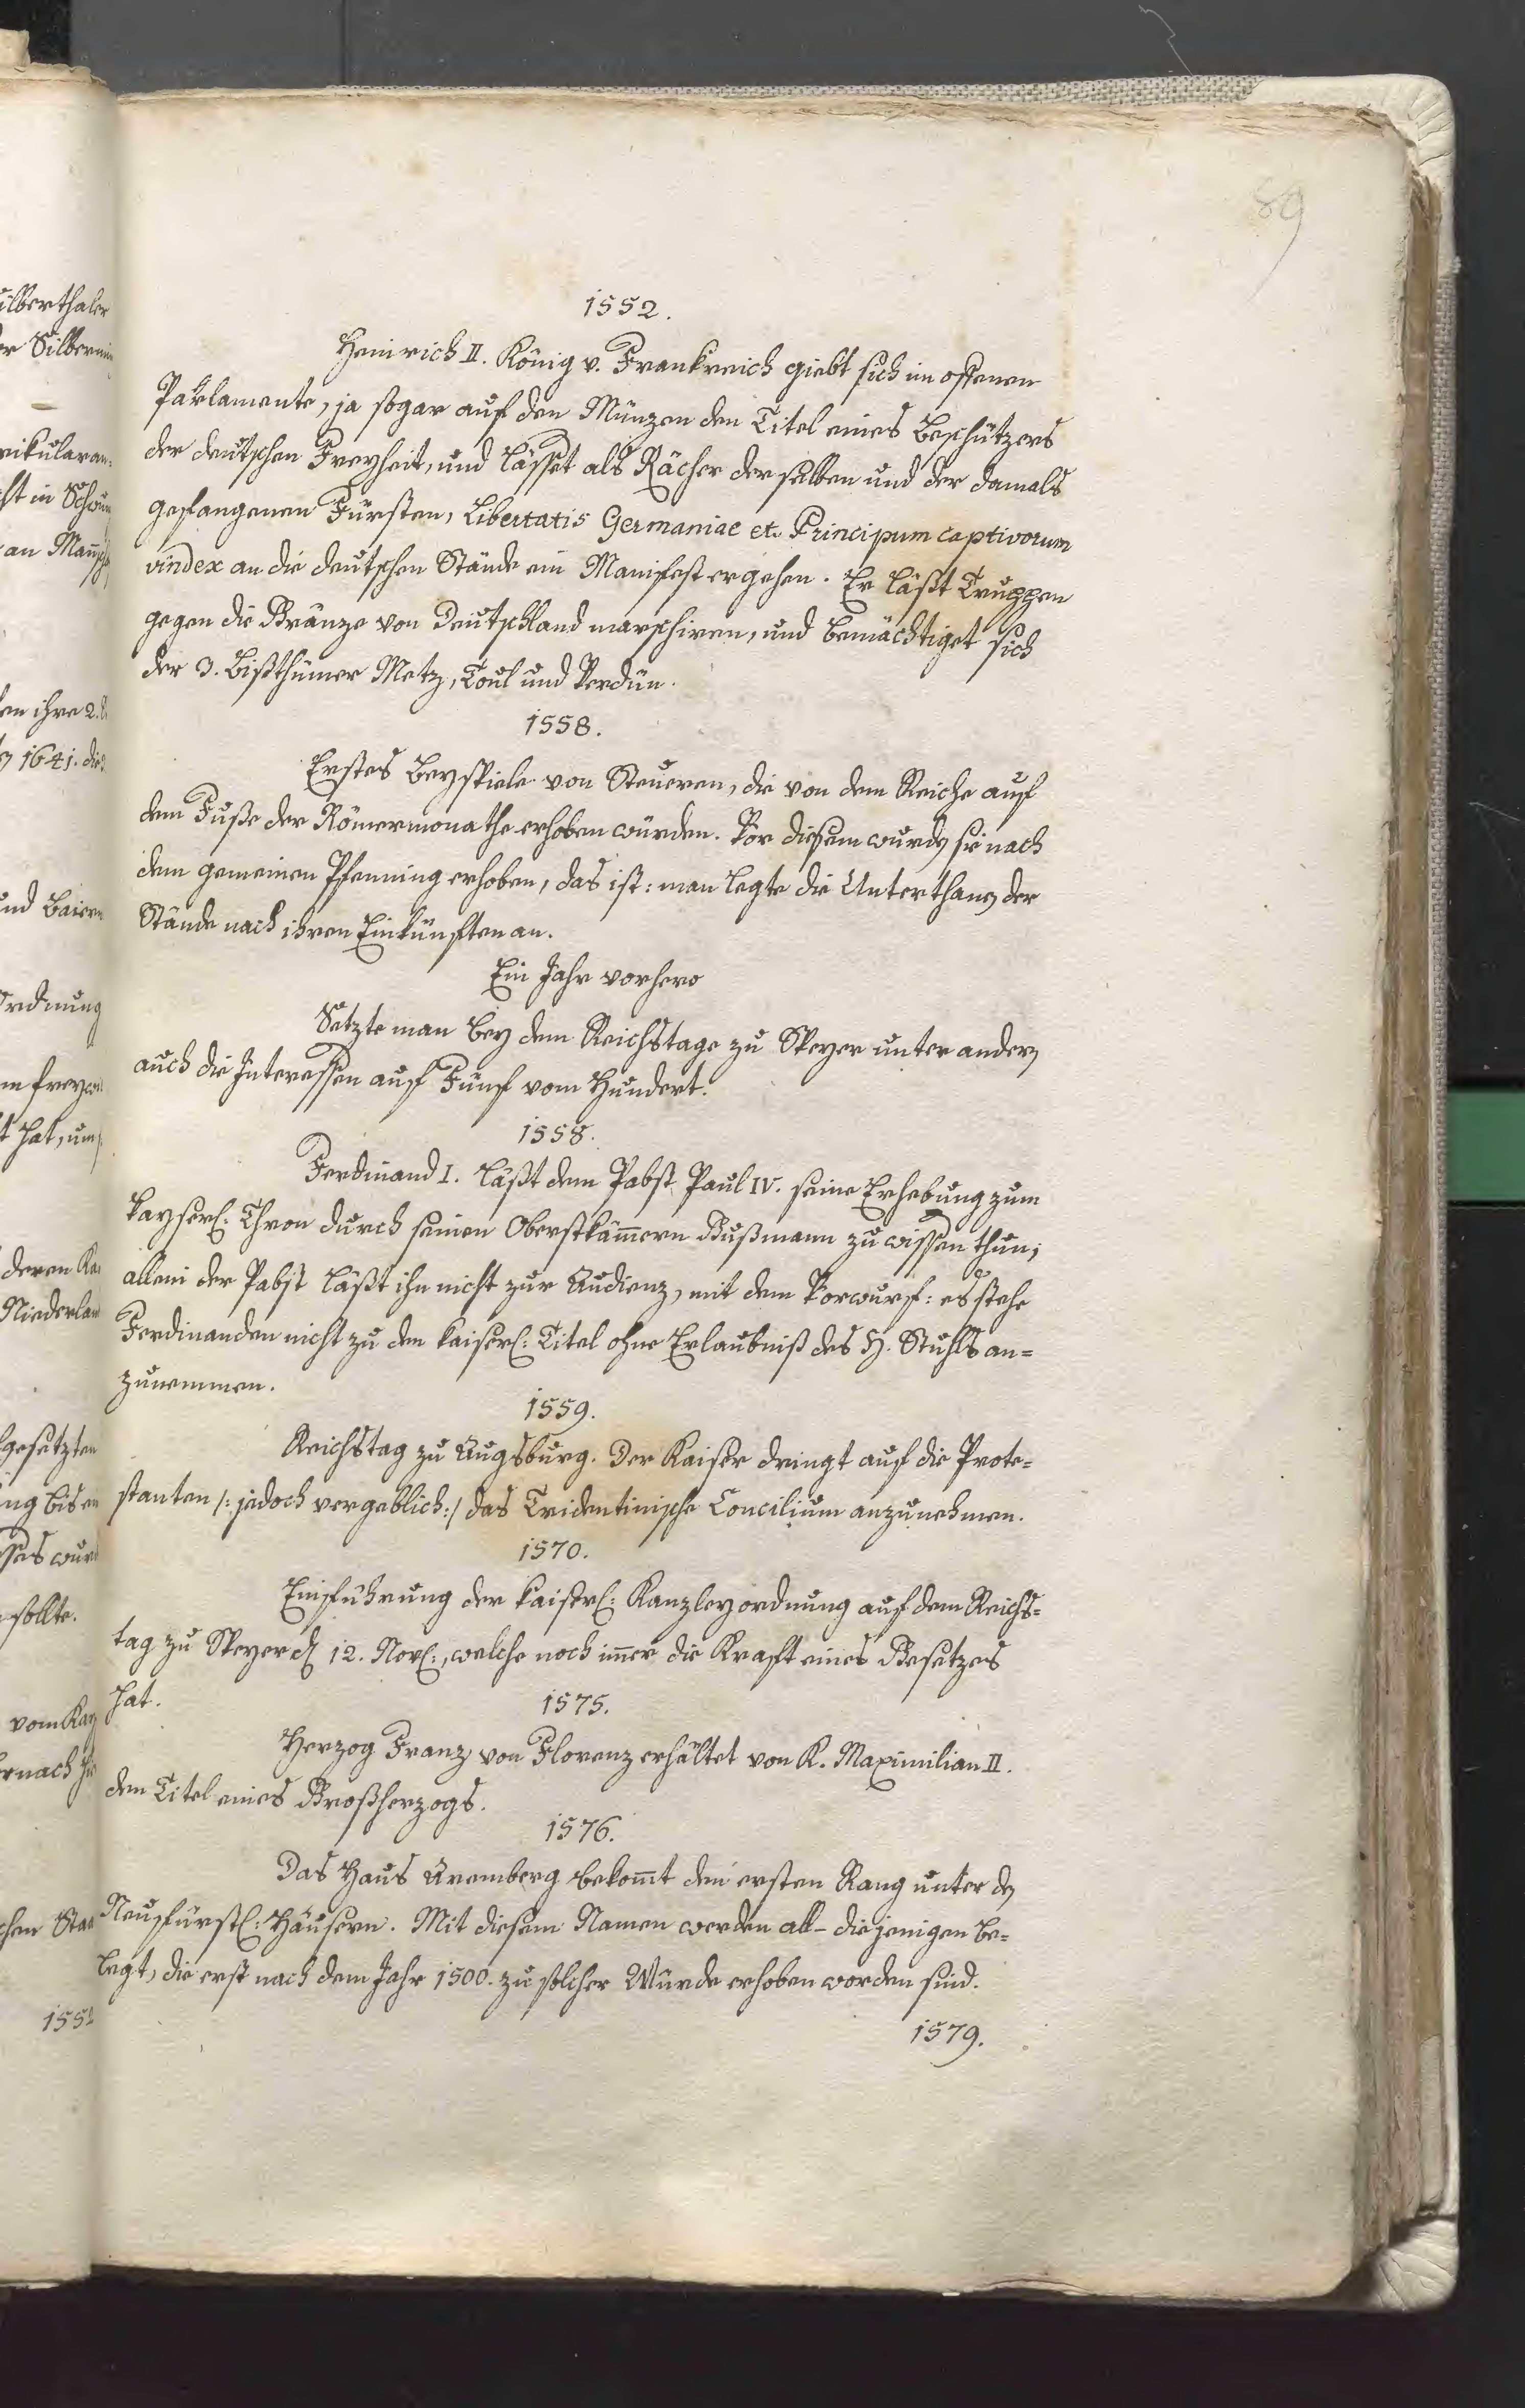 89
1552.
Heinrich II. König v. Frankreich giebt sich im offenen
Parlamente, ja sogar auf den Münzen den Titel eines Beschützers
der deutschen Freyheit, und lässet als Rächer derselben und der damals
gefangenen Fürsten, Libertatis Germaniae et Principum captivorum
vindex an die deutschen Stände ein Manifest ergehen. Er läßt Truppen
gegen die Gränze von Deutschland marschiren, und bemächtiget sich
der 3. Bißthümer Metz, Toul und Verdün.
1558.
Erstes Beyspiele von Steueren, die von dem Reiche auf
dem Fuße der Römermonathe erhoben würden. Vor diesem wurdn sie nach
dem gemeinen Pfenning erhoben, das ist: man legte die Unterthann der
Stände nach ihren Einkünften an.
Ein Jahr vorhero
Setzte man bey dem Reichstage zu Speyer unter andern
auch die Interessen auf Fünf vom Hundert.
1558.
Ferdinand I. läßt dem Pabst Paul IV. seine Erhebung zum
kayserl: Thron durch seinen Oberstkäm̄ern Gußmann zu wissen thun;
allein der Pabst läßt ihn nicht zur Audienz, mit dem Vorwurf: es stehe
Ferdinanden nicht zu den kaiserl: Titel ohne Erlaubniß des H. Stuhls an=
zunemmen.
1559.
Reichstag zu Augsburg. Der Kaiser dringt auf die Prote=
stanten /: jedoch vergeblich :/ das Tridentinische Concilium anzunehmen.
1570.
Einführung der kaiserl: Kanzleyordnung auf dem Reichs=
tag zu Speyer dn 12. Novl:, welche noch im̄er die Kraft eines Gesetzes
hat.
1575.
Herzog Franz von Florenz erhältet von K. Maximilian II.
den Titel eines Großherzogs.
1576.
Das Haus Aremberg bekom̄t den ersten Rang unter dn
Neufürstl: Häusern. Mit diesem Namen werden all- diejenigen be=
legt, die erst nach dem Jahr 1500. zu solcher Würde erhoben worden sind.
1579.